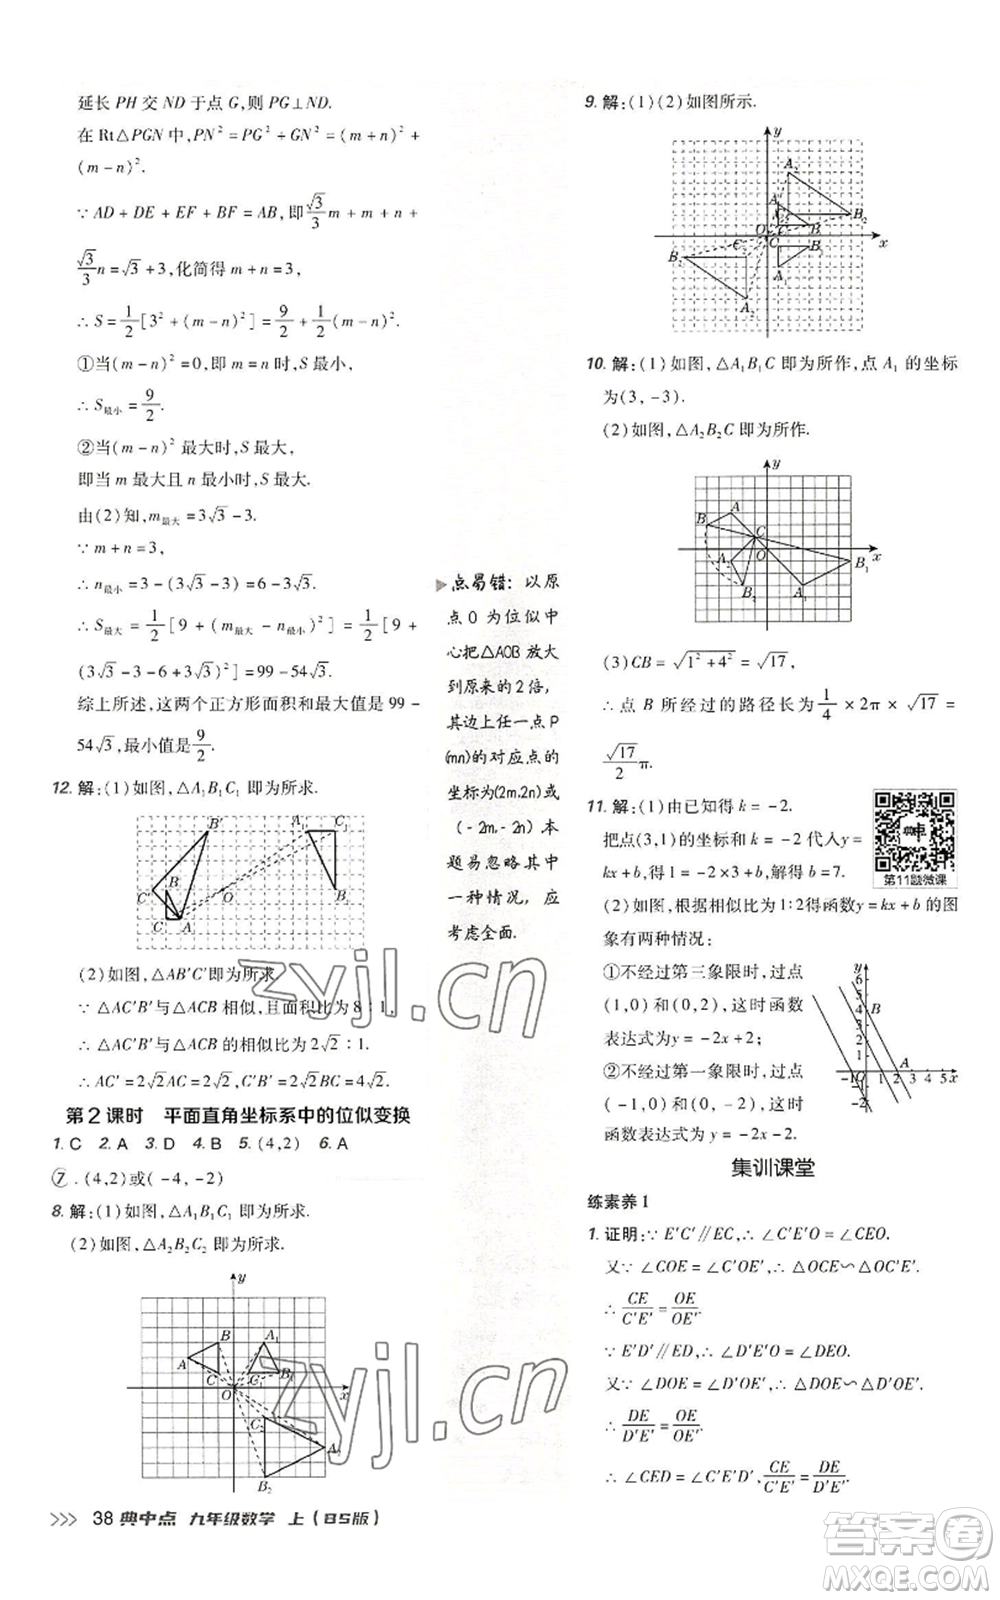 延长 PH 交 ND 于点 G,则 PG⊥ND.
在 Rt△PGN 中,PN²=PG²+GN²=(m+n)²+
(m-n)².
∵AD+DE+EF+BF=AB,即√3/3 m+m+n+
√3/3 n=√3+3,化简得 m+n=3,
∴S=1/2[3²+(m-n)²]=9/2+1/2(m-n)².
①当(m-n)²=0,即 m=n 时,S 最小,
∴S最小=9/2.
②当(m-n)² 最大时,S 最大,
即当 m 最大且 n 最小时,S 最大.
由(2)知,m最大=3√3-3.
∵m+n=3,
∴n最小=3-(3√3-3)=6-3√3.
∴S最大=1/2[9+(m最大-n最小)²]=1/2[9+
(3√3-3-6+3√3)²]=99-54√3.
综上所述,这两个正方形面积和的最大值是 99-
54√3,最小值是9/2.
12.解:(1)如图,△A₁B₁C₁ 即为所求.
B′ A₁ C₁
C′ B O
C A B₁
(2)如图,△AB′C′即为所求.
∵△AC′B′与△ACB 相似,且面积比为 8∶1,
∴△AC′B′与△ACB 的相似比为 2√2∶1.
∴AC′=2√2AC,AB′=2√2AB.
第 2 课时 平面直角坐标系中的位似变换
1.C 2.A 3.D 4.B 5.(4,2) 6.A
⑦.(4,2)或(-4,-2)
8.解:(1)如图,△A₁B₁C₁ 即为所求.
(2)如图,△A₂B₂C₂ 即为所求.
y
B A₁
A C C₁ B₁
O x
C₂
A₂
B₂
38 典中点 九年级数学 上(BS版)
点易错:以原
点O 为位似中
心把△AOB 放大
到原来的2倍,
其边上任一点P
(m,n)的对应点的
坐标为(2m,2n)或
(-2m,-2n)本
题易忽略其中
一种情况,应
考虑全面.
9.解:(1)(2)如图所示.
y
A₂
A B₂
O C B x
C₂ C₁ B₁
B₂ A₁
A₂
10.解:(1)如图,△A₁B₁C 即为所作,点 A₁ 的坐标
为(3,-3).
(2)如图,△A₂B₂C 即为所作.
y
A
B C
A₂ O B₁ x
B₂ A₁
(3)CB=√(1²+4²)=√17,
∴点 B 所经过的路径长为1/4×2π×√17=
√17/2 π.
11.解:(1)由已知得 k=-2.
把点(3,1)的坐标和 k=-2 代入 y=
kx+b,得 1=-2×3+b,∴b=7.
典中点
第11题微课
(2)如图,根据相似比为 1∶2得函数 y=kx+b 的图
象有两种情况:
①不经过第三象限时,过点
(1,0)和(0,2),这时函数
表达式为 y=-2x+2;
②不经过第一象限时,过点
(-1,0)和(0,-2),这时
函数表达式为 y=-2x-2.
y
6
5
4 B
3
2
1 A
-1 O 1 2 3 4 5 x
-1
-2
集训课堂
练素养 1
1.证明:∵E′C′∥EC,∴∠C′E′O=∠CEO.
又∵∠COE=∠C′OE′,∴△OCE∽△OC′E′.
∴CE/C′E′=OE/OE′.
∵E′D′∥ED,∴∠D′E′O=∠DEO.
又∵∠DOE=∠D′OE′,∴△DOE∽△D′OE′.
∴DE/D′E′=OE/OE′.
∴∠CED=∠C′E′D′,CE/C′E′=DE/D′E′.
zyjl.cn
zyjl.cn
答案圈
MXQE.COM